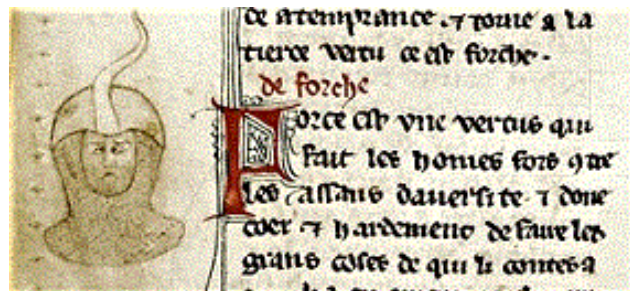 de atemprance ⁊ torne a la
tierce vertu ce est forche.
de forche
Force est vne vertus qui
fait les homes fors ꝯtre
les assaus dauersite ⁊ done
coer ⁊ hardement de faire les
grans coses de qui li contes a